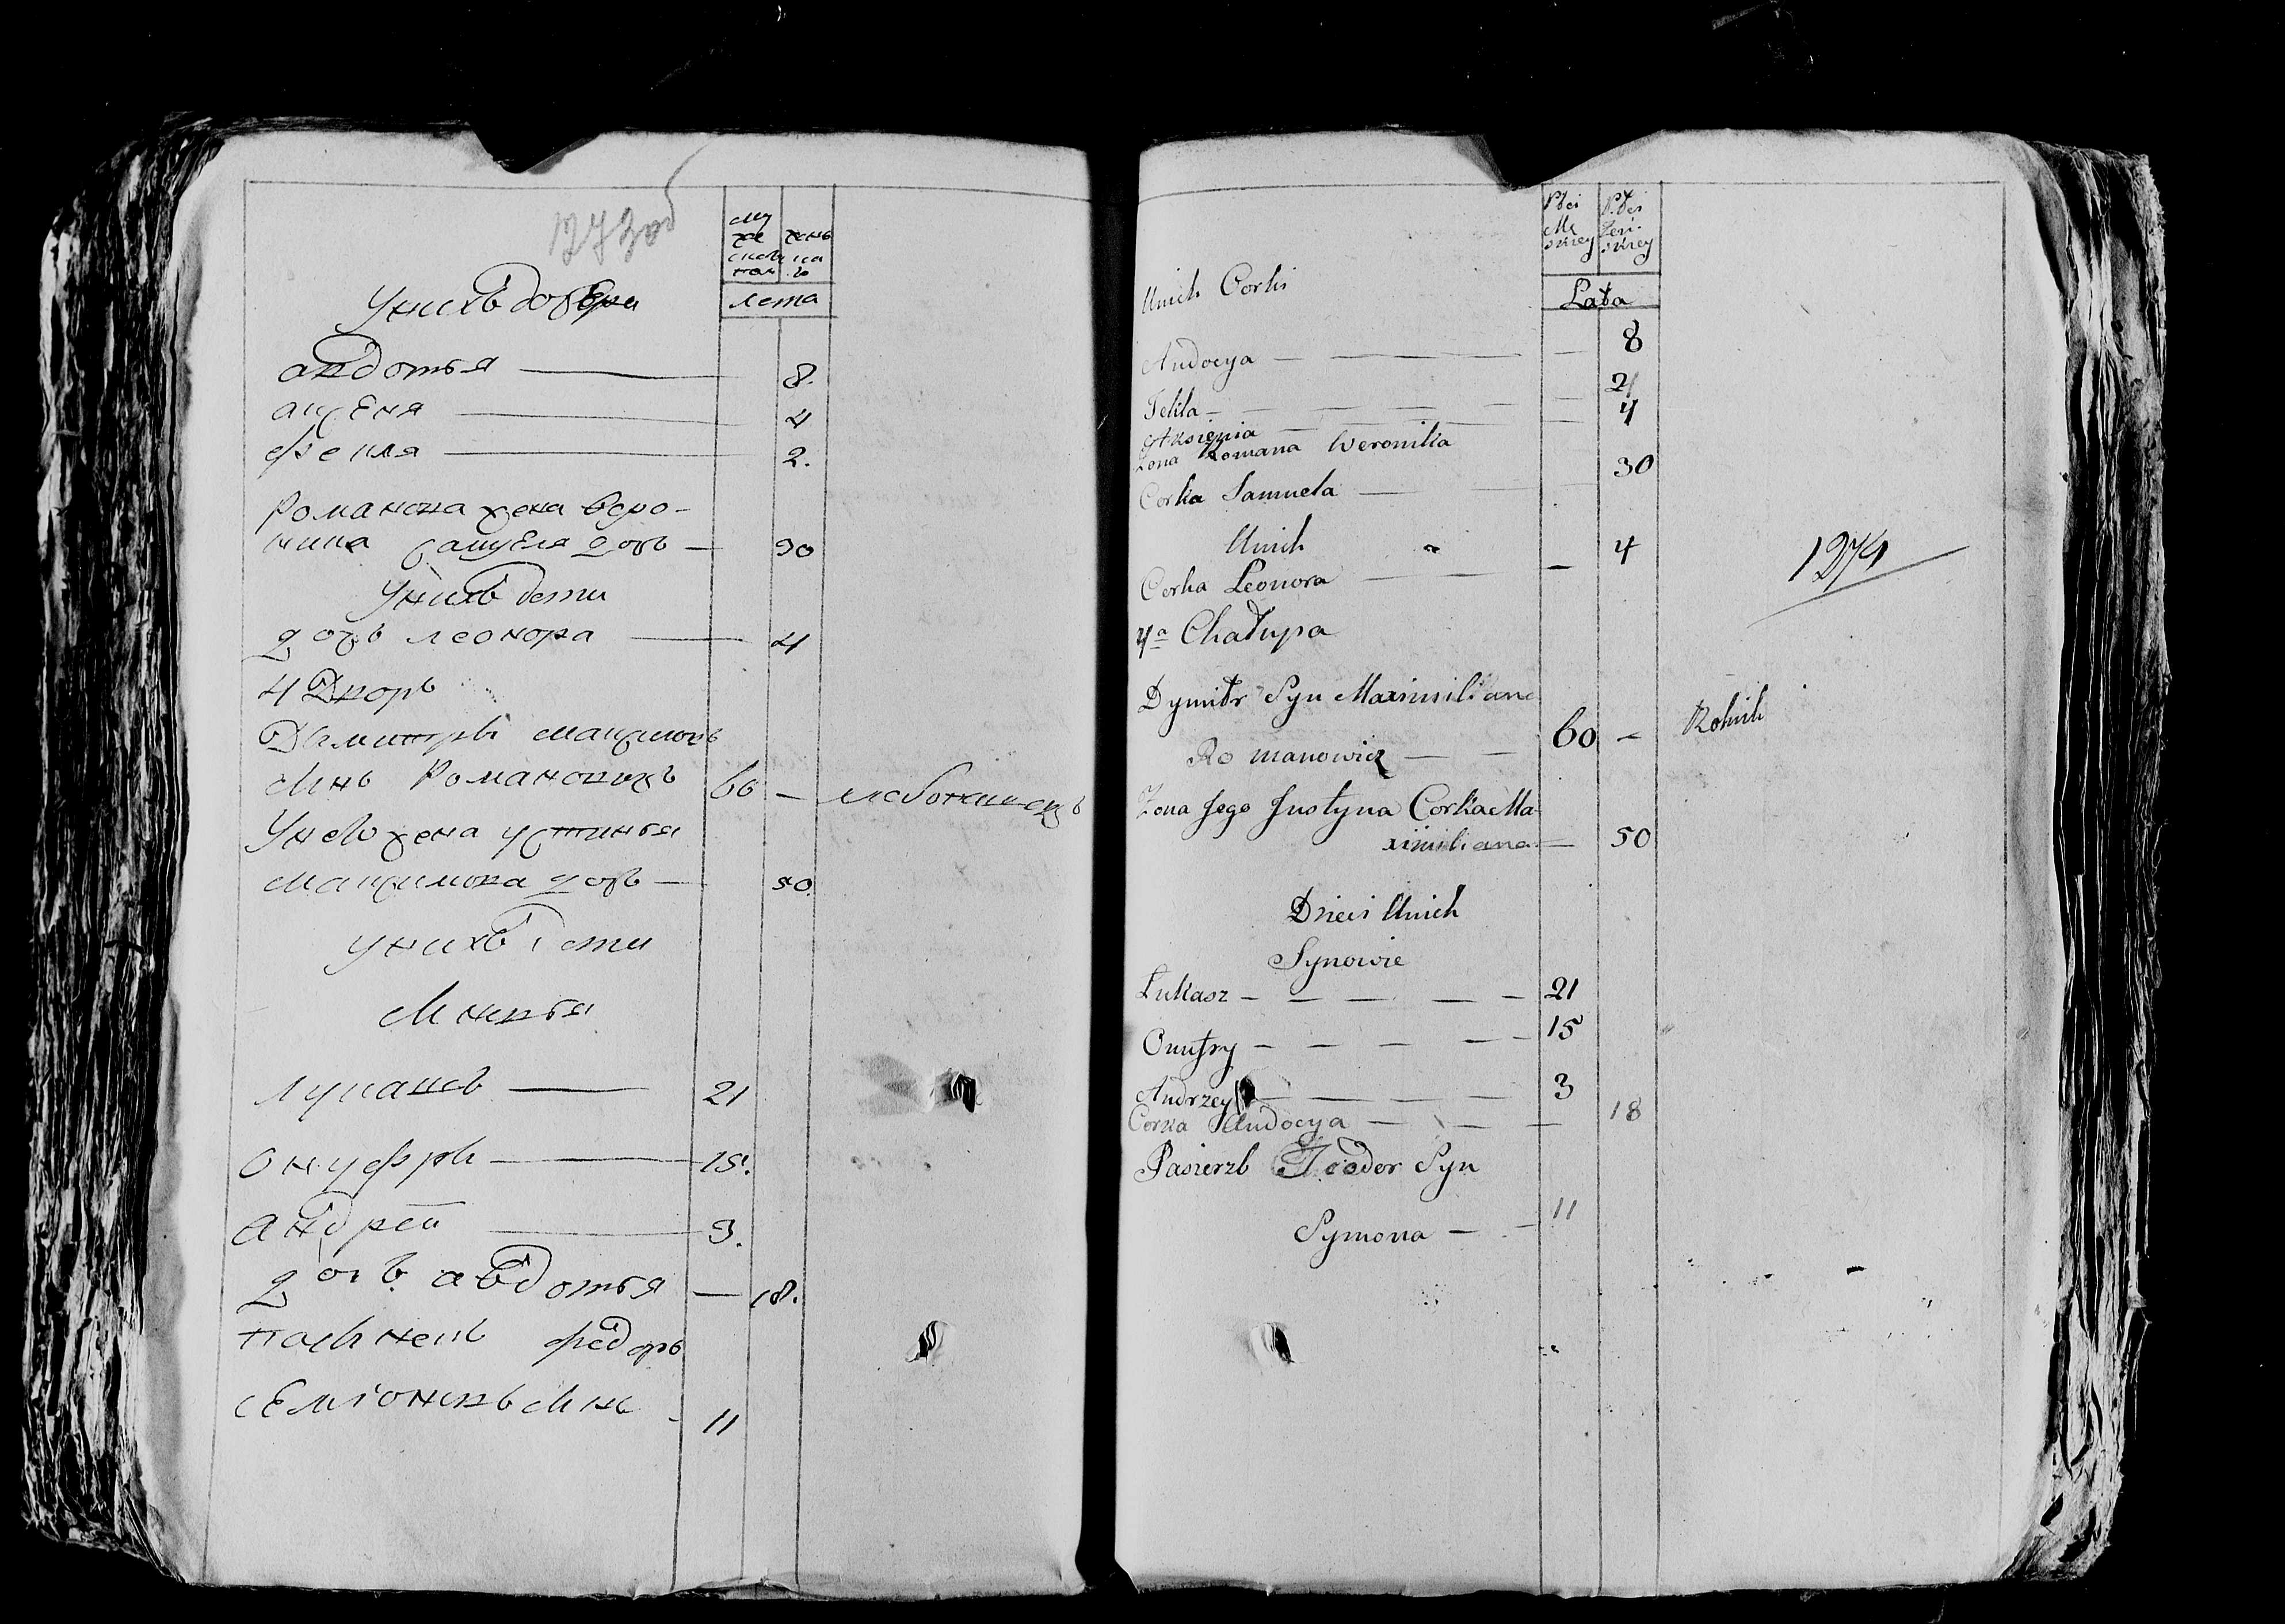 1273 об
му
же
ска
пол
женс
ка
го
лета
у нихъ дочери
авдотья — 8.
аксеня — 4
фекла — 2.
Романова жена веро-
ника самуела дочь — 30
у нихъ дети
дочь леонора — 4
4 Дворъ
Дмитры максимовъ
сынъ Романовичъ 60 —
У него жена устинья
максимова дочь — 50.
у нихъ дети
сыновья
лукашъ — 21
онуфри — 15.
андрей — 3.
дочь авдотья — 18.
пасынокъ федоръ
семионовъ сынъ - 11
Płci
Mę
skiey
Płci
Żeń-
skiey
Lata
Unich Corki
Audocya — 8
Tekla — 2
Aksienia — 4
Zona Romana Weronika
Corka Samuela — 30
Unich
Corka Leonora — 4
1274
4a Chałupa
Dymitr Syn Maximiliana
Romanowicz — 60 — Rolnik
Zona Jego Justyna Corka Ma-
ximiliana — 50
Dzieci Unich
Synowie
Lukasz — 21
Onufry — 15
Andrzey — 3
Corka Audocya — 18
Pasierzb Teodor Syn
Symona — 11